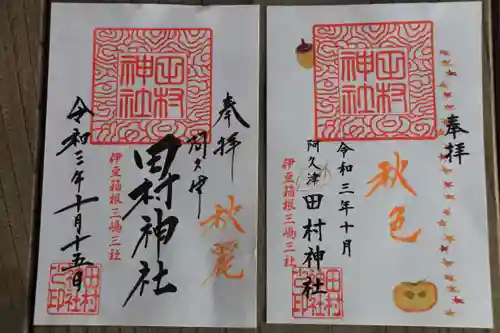 奉拝
阿久津
秋麗
田村神社
田村神社
伊豆箱根三嶋三社
令和三年十月十五日
田村神社之印
奉拝
秋色
田村神社
令和三年十月
阿久津
田村神社
伊豆箱根三嶋三社
田村神社之印